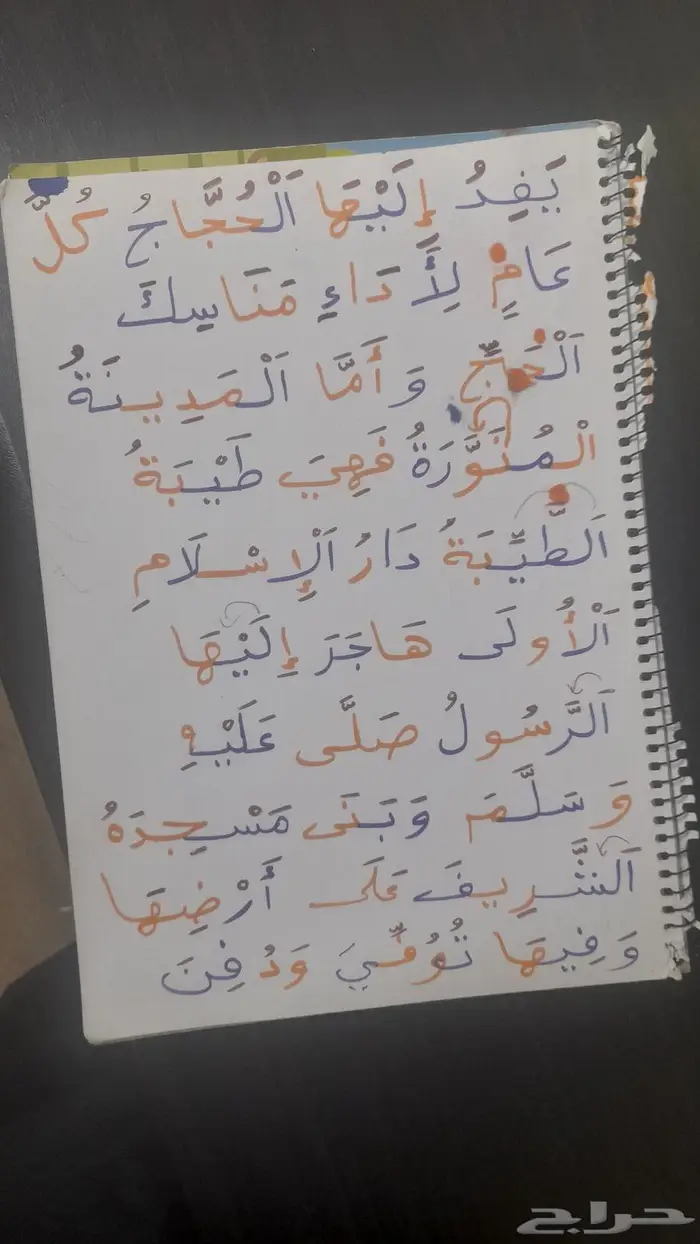 يَفِدُ إِلَيْهَا اَلْحُجَّاجُ كُلَّ
عَامٍ لِأَدَاءِ مَنَاسِكَ
اَلْحَجِّ وَأَمَّا اَلْمَدِينَةُ
الْمُنَوَّرَةُ فَهِيَ طَيْبَةُ
اَلطَّيِّبَةُ دَارُ اَلْإِسْلَامِ
اَلْأُولَى هَاجَرَ إِلَيْهَا
اَلرَّسُولُ صَلَّى عَلَيْهِ
وَسَلَّمَ وَبَنَى مَسْجِدَهُ
اَلشَّرِيفَ عَلَى أَرْضِهَا
وَفِيهَا تُوُفِّيَ وَدُفِنَ
حراج